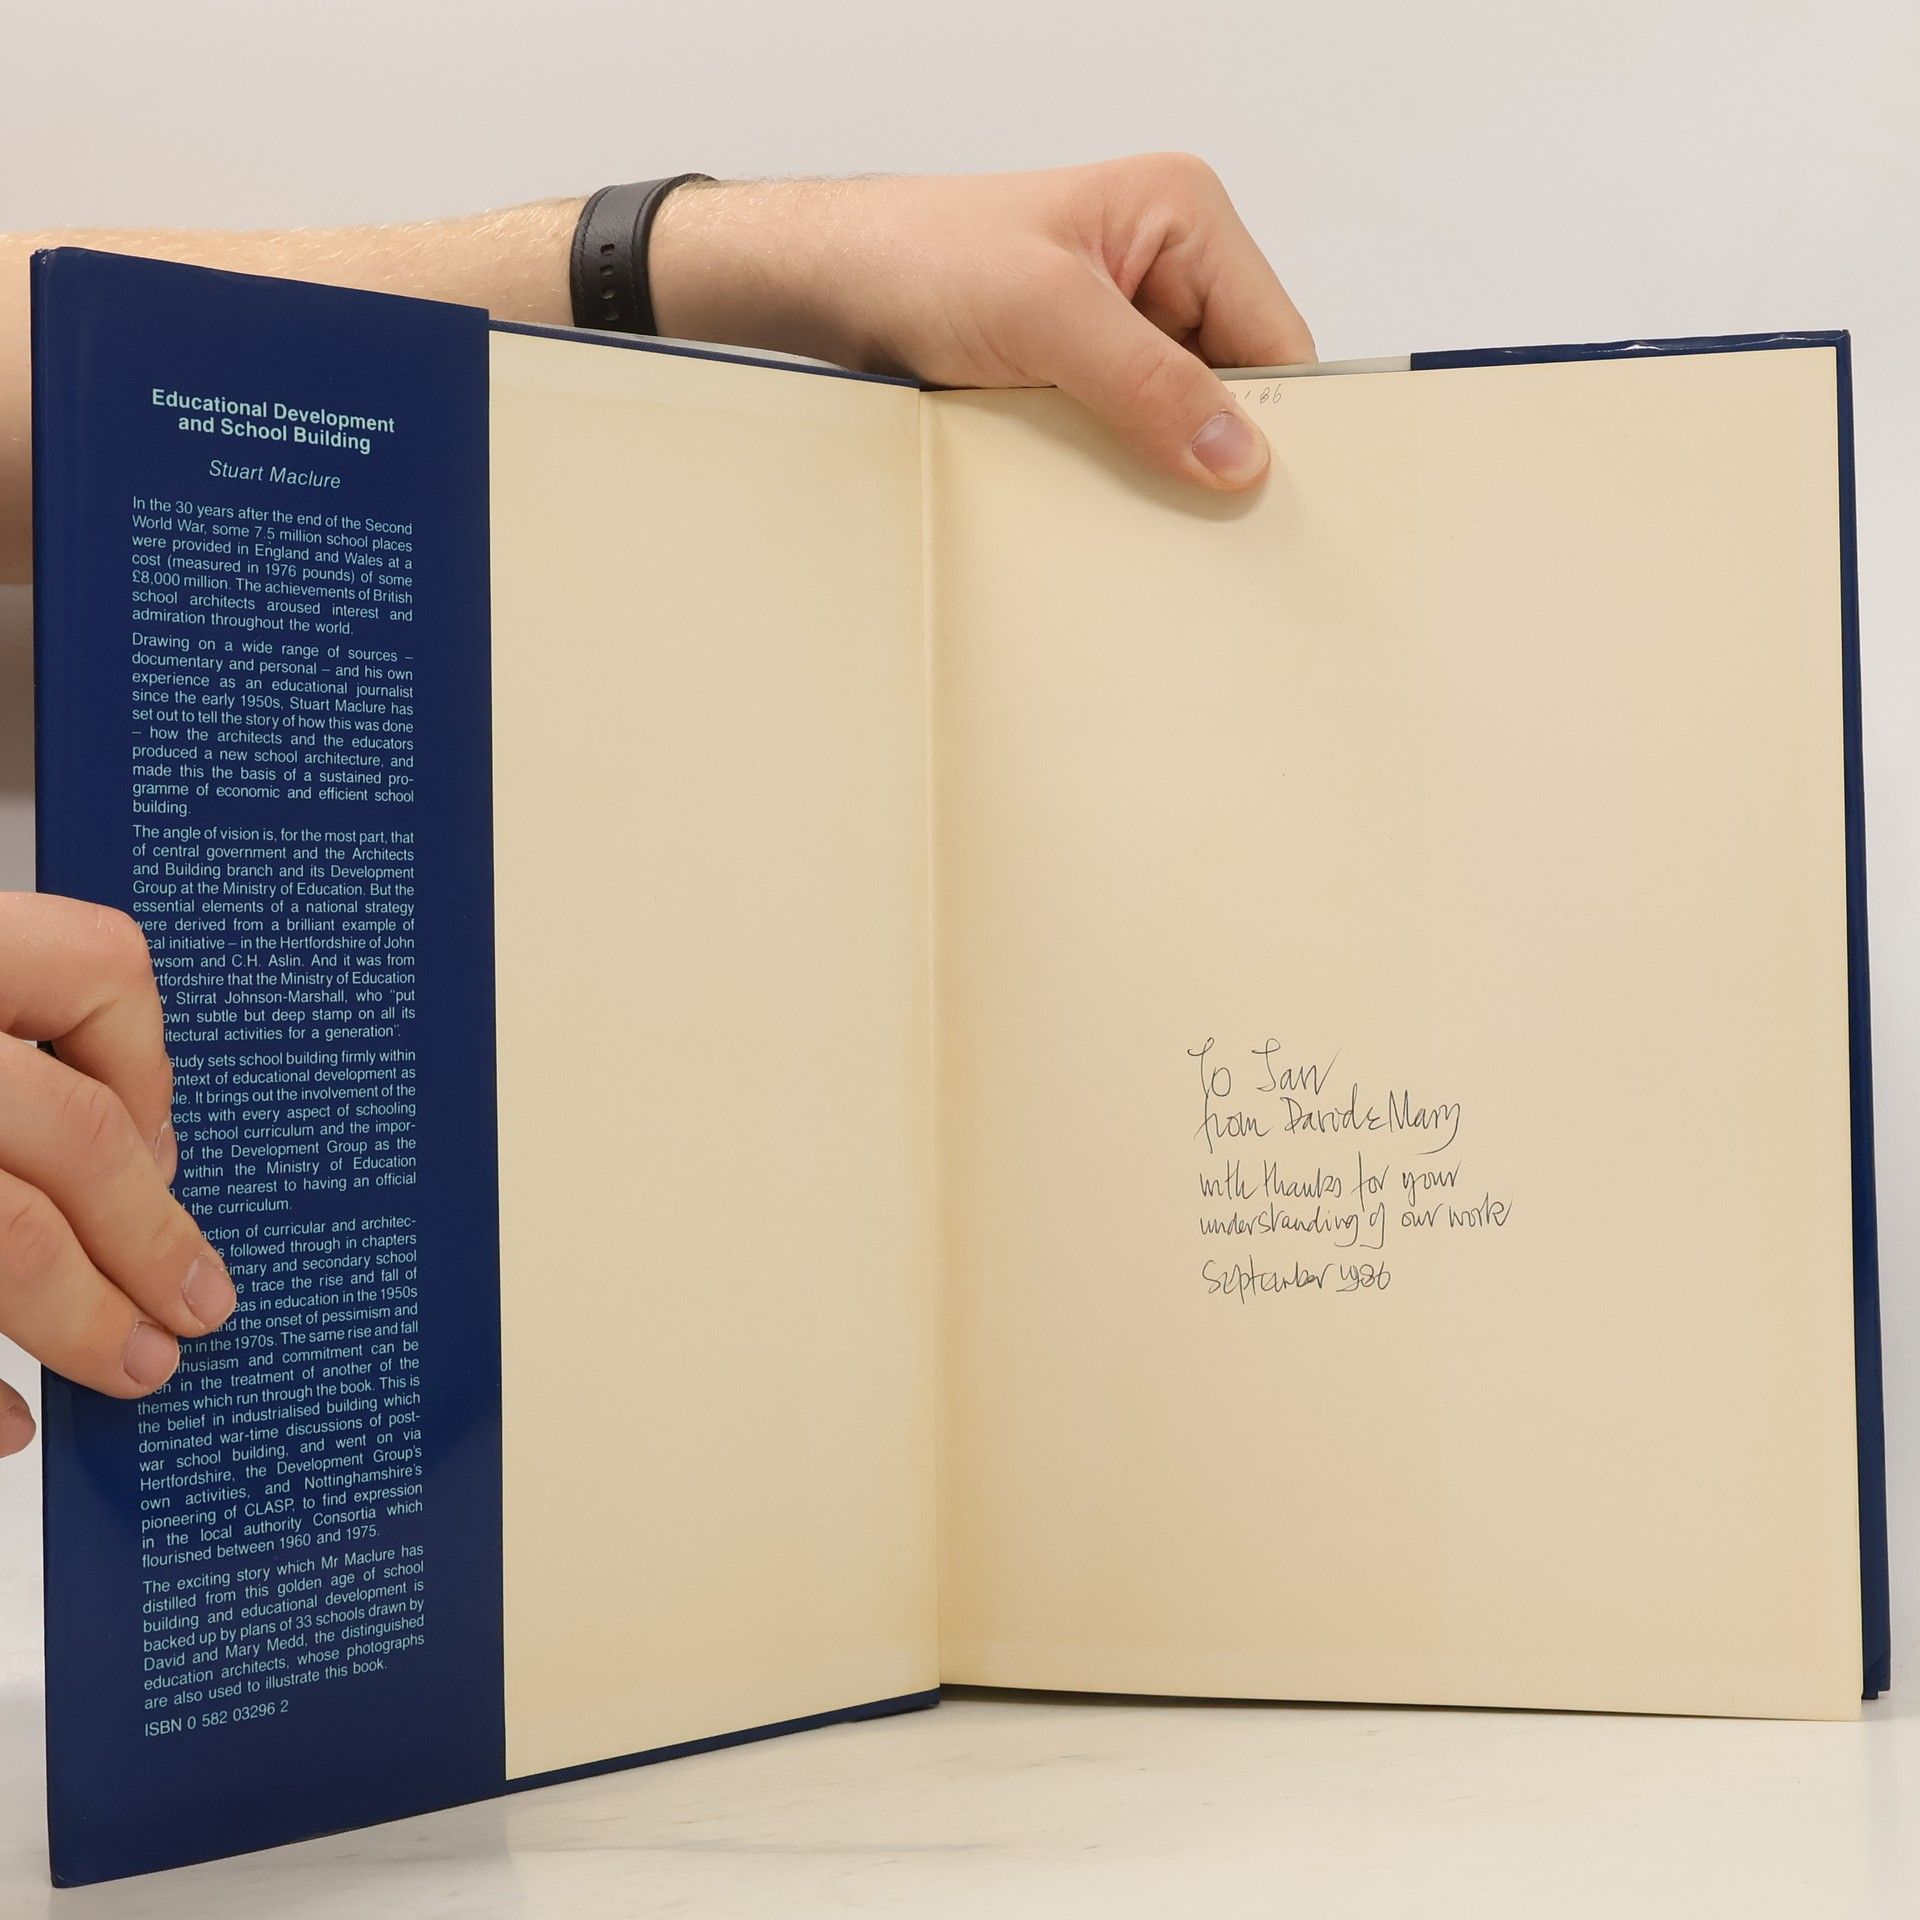 Educational Development
and School Building
Stuart Maclure
In the 30 years after the end of the Second
World War, some 7.5 million school places
were provided in England and Wales at a
cost (measured in 1976 pounds) of some
£8,000 million. The achievements of British
school architects aroused interest and
admiration throughout the world.
Drawing on a wide range of sources –
documentary and personal – and his own
experience as an educational journalist
since the early 1950s, Stuart Maclure has
set out to tell the story of how this was done
– how the architects and the educators
produced a new school architecture, and
made this the basis of a sustained pro-
gramme of economic and efficient school
building.
The angle of vision is, for the most part, that
of central government and the Architects
and Building branch and its Development
Group at the Ministry of Education. But the
essential elements of a national strategy
were derived from a brilliant example of
cal initiative – in the Hertfordshire of John
wsom and C.H. Aslin. And it was from
rtfordshire that the Ministry of Education
w Stirrat Johnson-Marshall, who "put
own subtle but deep stamp on all its
itectural activities for a generation".
study sets school building firmly within
ontext of educational development as
le. It brings out the involvement of the
ects with every aspect of schooling
he school curriculum and the impor-
of the Development Group as the
within the Ministry of Education
came nearest to having an official
the curriculum.
action of curricular and architec-
s followed through in chapters
imary and secondary school
e trace the rise and fall of
eas in education in the 1950s
nd the onset of pessimism and
on in the 1970s. The same rise and fall
thusiasm and commitment can be
en in the treatment of another of the
themes which run through the book. This is
the belief in industrialised building which
dominated war-time discussions of post-
war school building, and went on via
Hertfordshire, the Development Group's
own activities, and Nottinghamshire's
pioneering of CLASP, to find expression
in the local authority Consortia which
flourished between 1960 and 1975.
The exciting story which Mr Maclure has
distilled from this golden age of school
building and educational development is
backed up by plans of 33 schools drawn by
David and Mary Medd, the distinguished
education architects, whose photographs
are also used to illustrate this book.
ISBN 0 582 03296 2
86
To
from David & Mary
with thanks for your
understanding of our work
September 1986